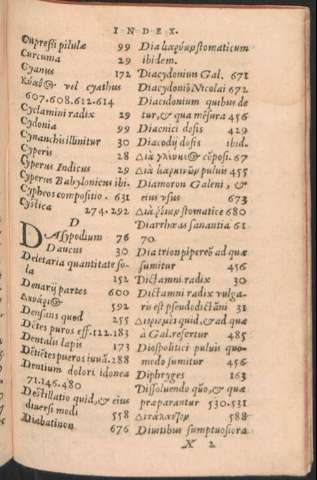 INDEX.
Cupressi pilulæ 99
Curcuma 29
Cyanus 172
vel cyathus
607.608.612.614
Cyclamini radix 29
Cydonia 99
Cynanchis illinitur 30
Cyperis 28
Cyperus Indicus 29
Cyperus Babylonicus ibi.
Cypheos compositio. 631
Cystica 274.292
D
DAsypodium 76
Daucus 30
Deletaria quantitate so-
la 152
Denarij partes 600
591
Densans quod 255
Dētes puros eff. 122.183
Dentalis lapis 173
Dētītiēs pueros iuuā. 288
Dentium dolori idonea
71.146.480
Destillatio quid, & eius
diuersi modi 558
Diabatinon 676
stomaticum
ibidem.
Diacydoniun Gal. 671
Diacydoniū Nicolai 672
Diacidonium quibus de
tur, & qua mēsura 456
Diacnici dosis 429
Diacodij dosis ibid.
cōpos. 67
puluis 455
Diamoron Galeni, &
eius vsus 673
stomatice 680
Diarrhœas sanantia 61
70.
Dia trion pipereō ad quæ
sumitur 456
Dictamni radix 30
Dictamni radix vulga-
ris est pseudodictānī 31
quid, & ad quæ
à Gal. refertur 485
Diospolitici puluis quo-
modo sumitur 456
Diphryges 163
Dissoluendo quō, & quæ
præparantur 530.531
588
Diuitibus sumptuosiora
X 2